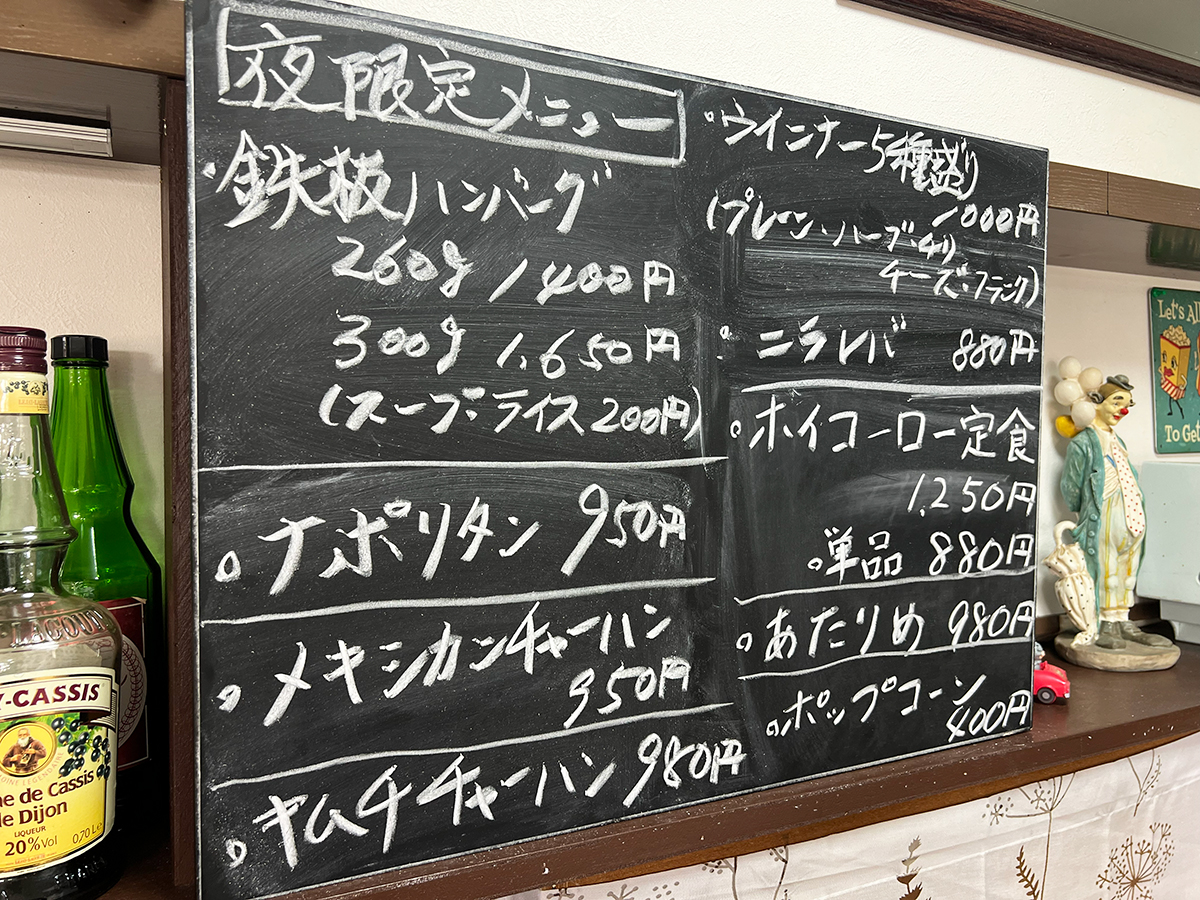 夜限定メニュー
・鉄板ハンバーグ
260g 1400円
300g 1,650円
(スープ・ライス200円)
。ナポリタン 950円
。メキシカンチャーハン
950円
。キムチチャーハン 980円
。ウインナー5種盛り
1000円
(プレーン・ハーブ・チリ
チーズ・フランク)
。ニラレバ 880円
。ホイコーロー定食
1,250円
。単品 880円
。あたりめ 980円
。ポップコーン
400円
Y-CASSIS
ne de Cassis
de Dijon
LIQUEUR
20%Vol 0,70 L
Let's All
To Get